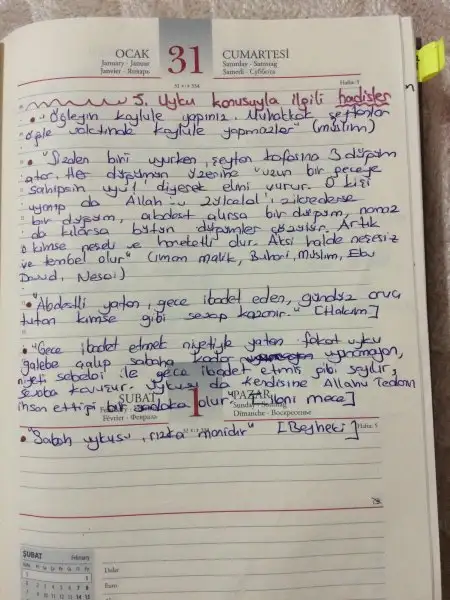 OCAK 31 CUMARTESİ
January - Januar Saturday - Samstag
Janvier - Январь Samedi - Суббота
Hafta: 5
5. Uyku konusuyla ilgili hadisler
• "Öğleyin kaylule yapınız. Muhakkak şeytanlar
öğle vaktinde kaylule yapmazlar" (müslim)
• "Sizden biri uyurken, şeytan kafasına 3 düğüm
atar. Her düğümün üzerine "uzun bir geceye
sahipsin uyu", diyerek elini vurur. O kişi
uyanıp da Allah'ı zikrederse
bir düğüm, abdest alırsa bir düğüm, namaz
da kılarsa bütün düğümler çözülür. Artık
o kimse neşeli ve hareketli olur. Aksi halde neşesiz
ve tembel olur" (imam malik, Buhari, Müslim, Ebu
Davud, Nesai)
• "Abdestli yatan, gece ibadet eden, gündüz oruç
tutan kimse gibi sevap kazanır." [Hakim]
• "Gece ibadet etmek niyetiyle yatan fakat uyku
galebe çalıp sabaha kadar uyanamayan,
niyeti sebebi ile gece ibadet etmiş gibi sayılır,
sevaba kavuşur. Uykusu da kendisine Allahu Tealanın
ihsan ettiği bir sadaka olur." [İbni mace]
ŞUBAT 1 PAZAR
Février - Февраль Dimanche - Воскресенье
Hafta: 5
• "Sabah uykusu, rızka manidir" [Beyheki]
ŞUBAT February